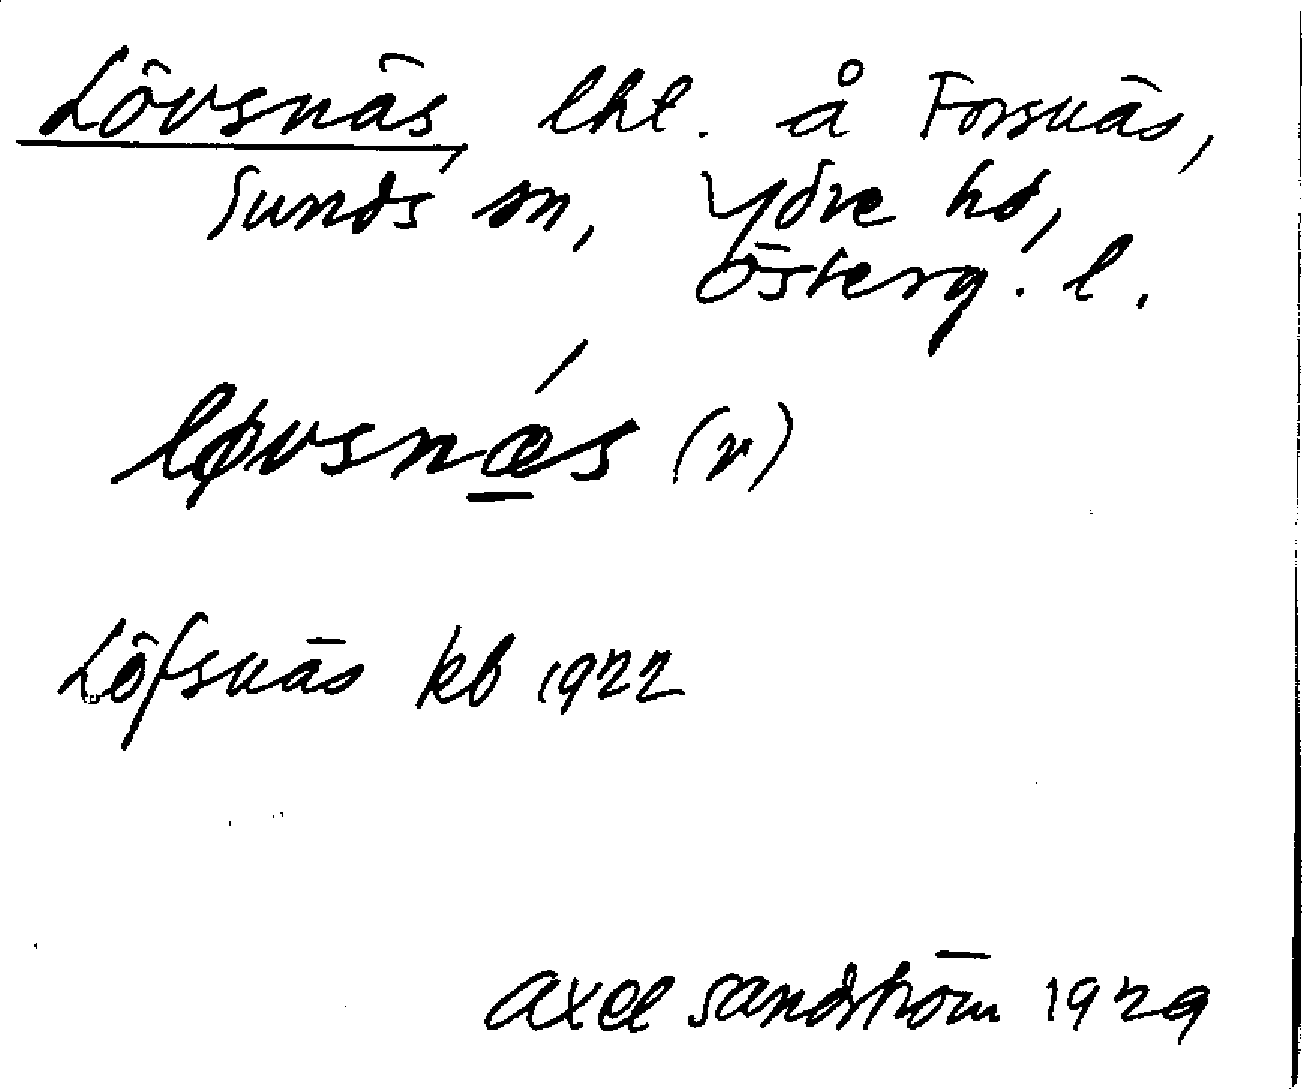 Lövsnäs, lht. å Forsnäs,
Sunds sn, Ydre hd,
Österg. l.
løvsnǽ̲s (n)
Löfsnäs kb 1922
Axel Sandström 1929